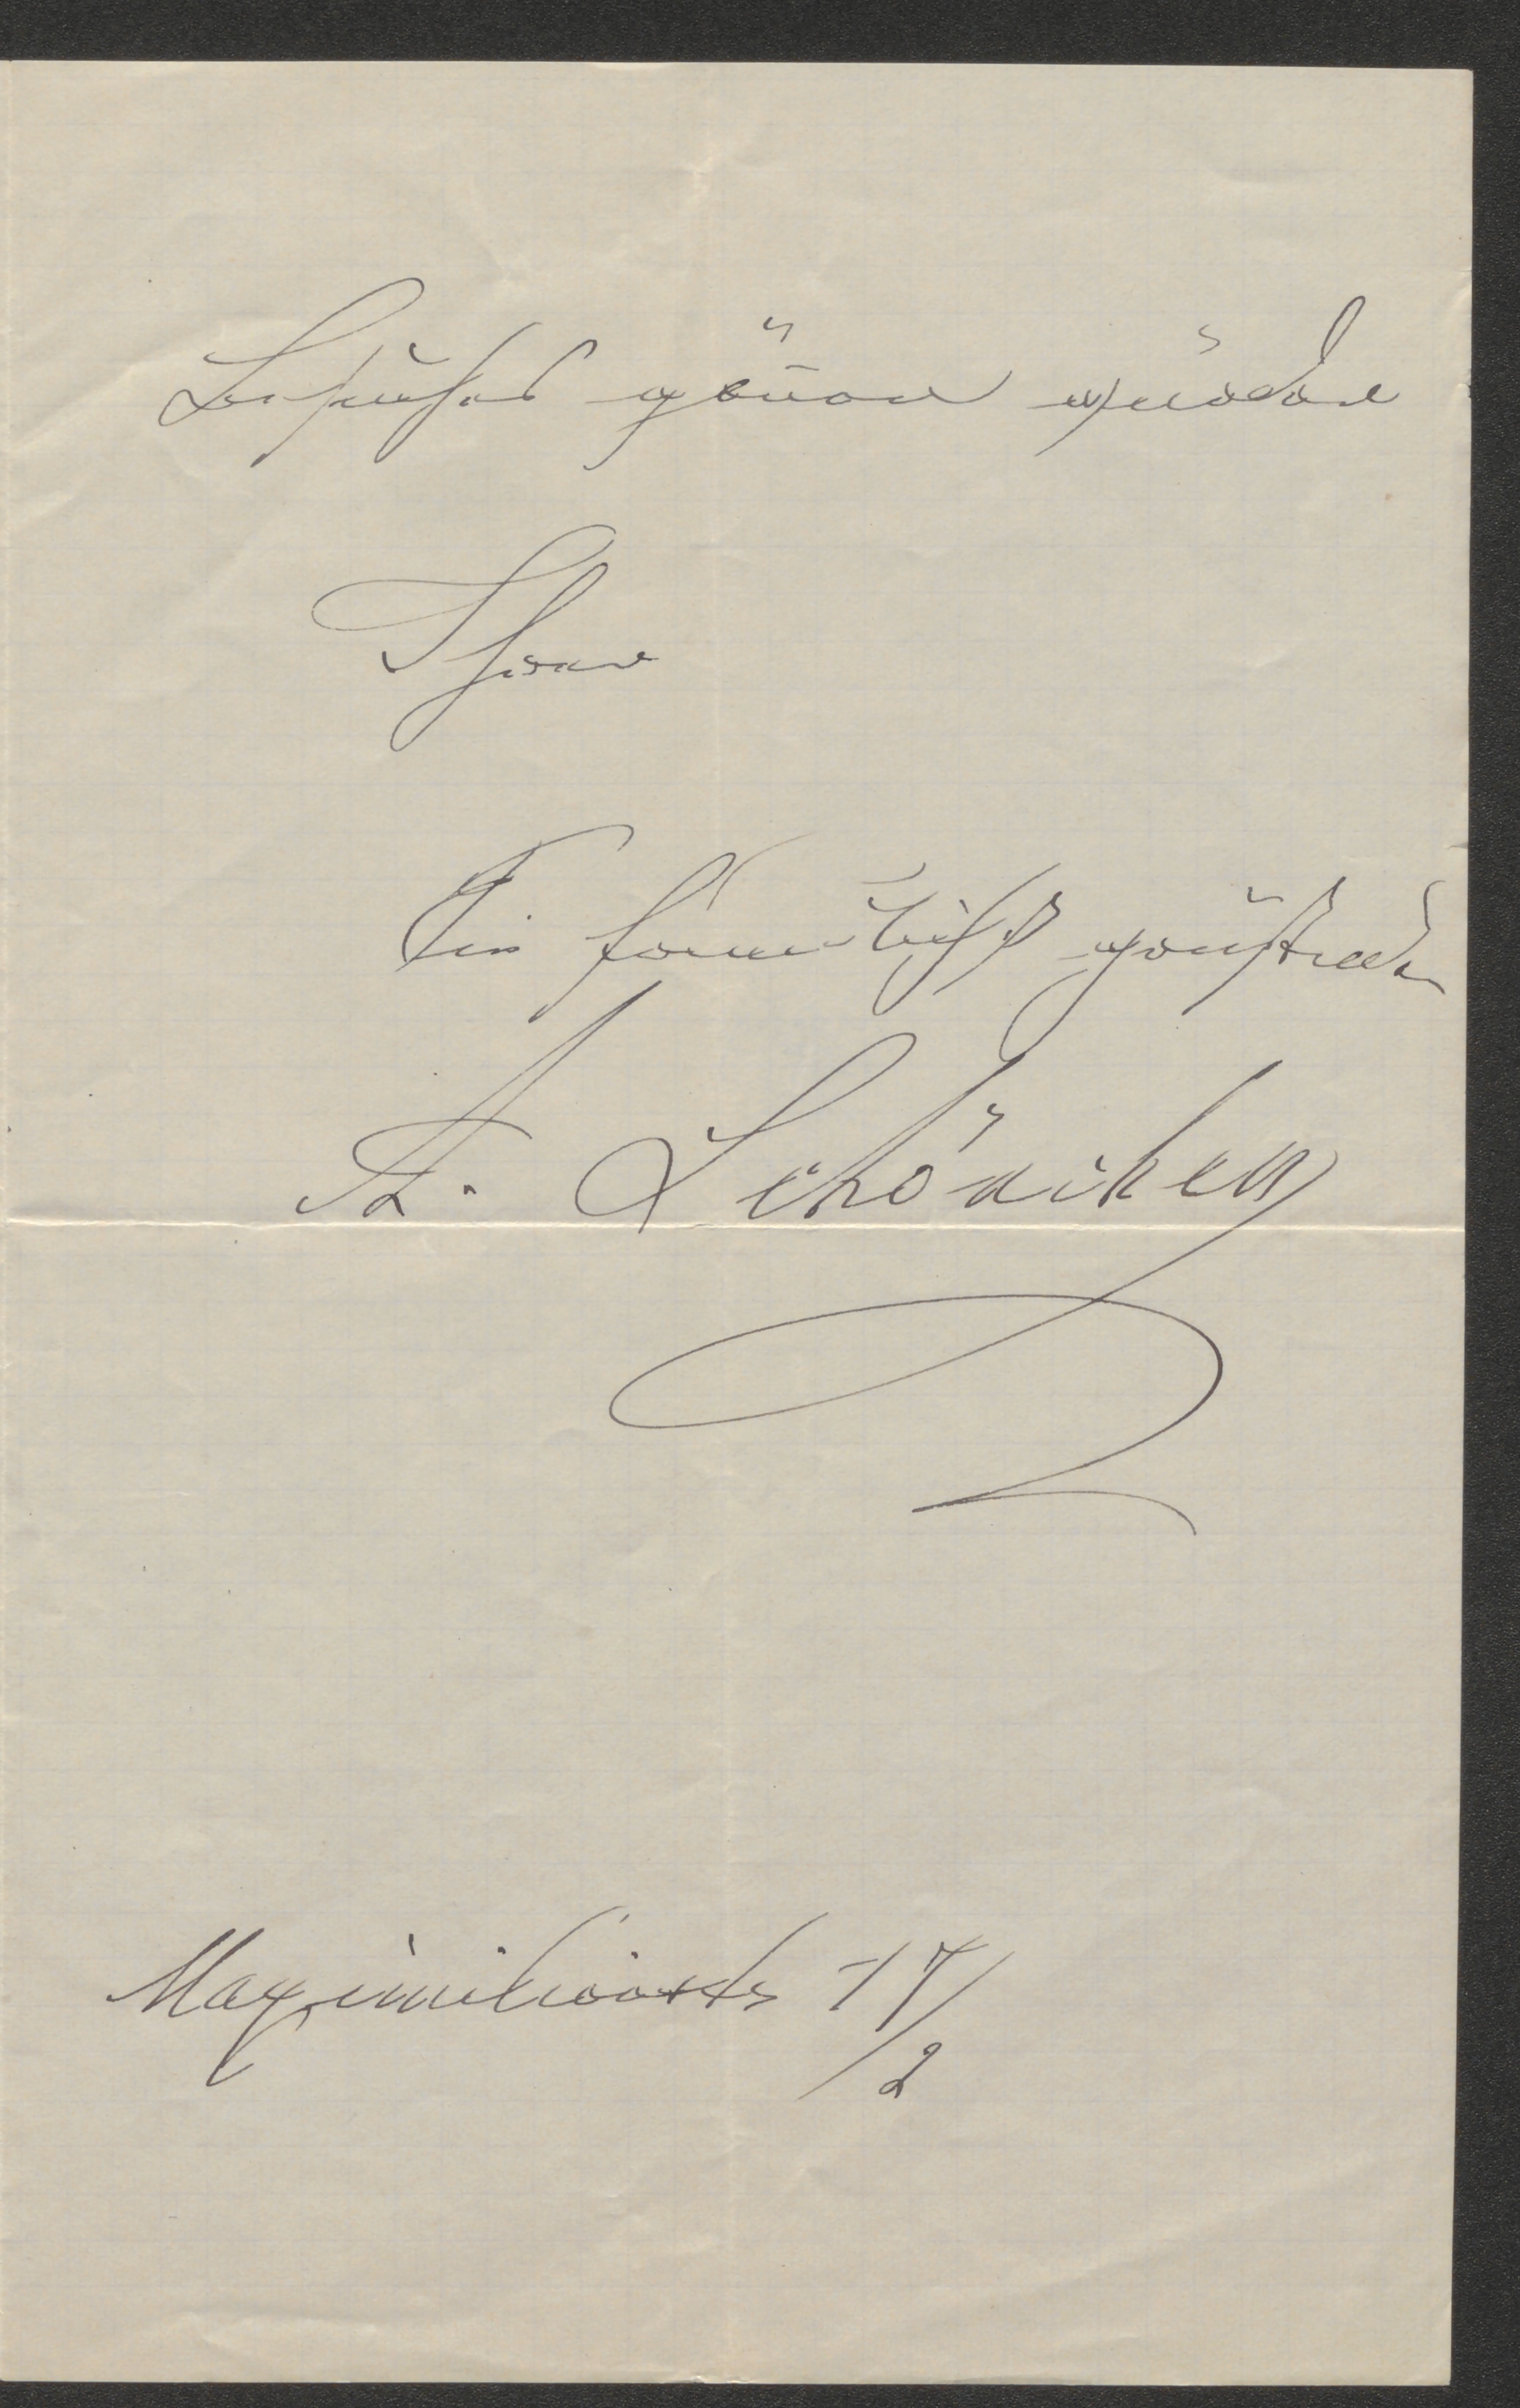 Besuches gönnen würden
Ihrem
Sie freundlichst grüßenden
A. Schönchen
Maximiliansstr 17/2